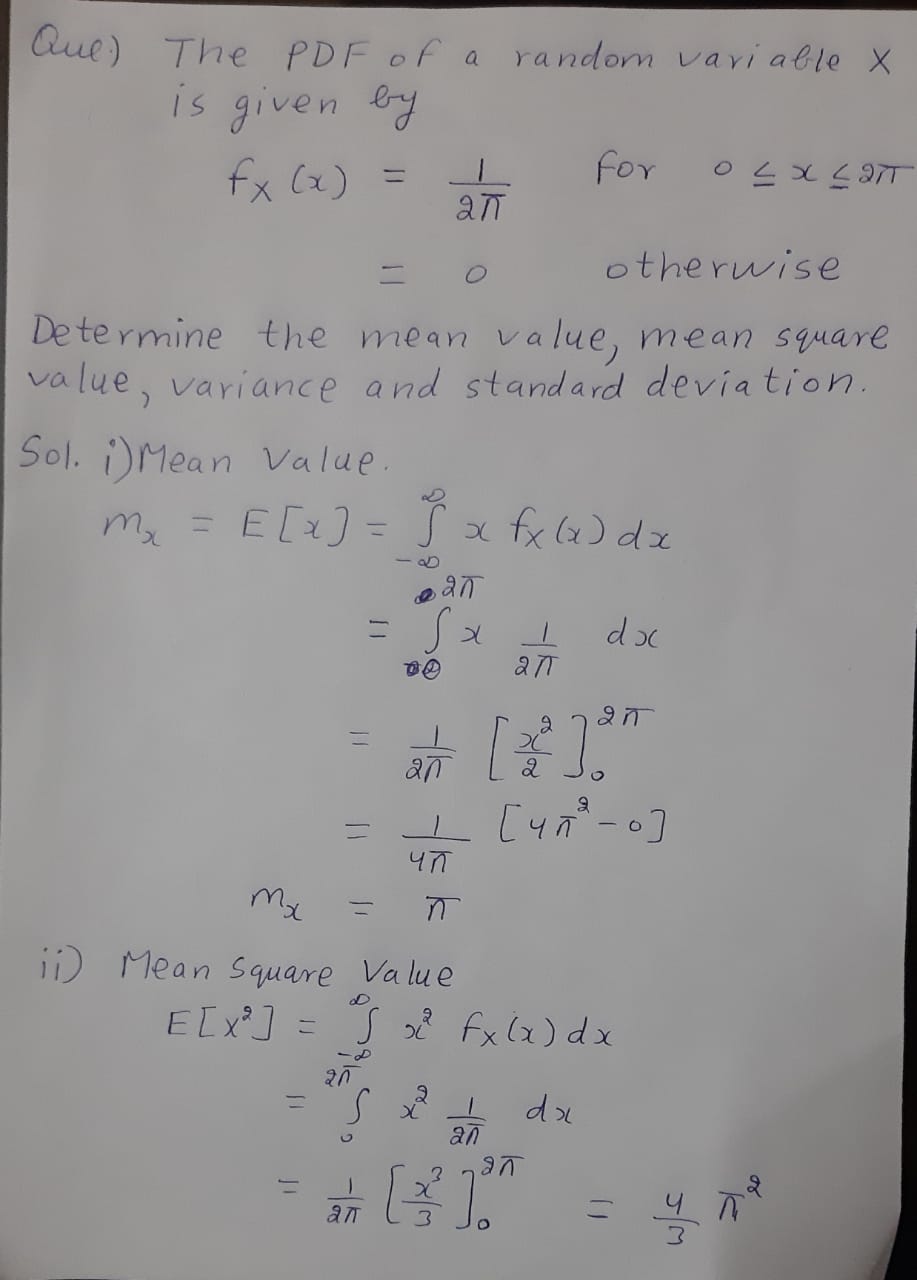 Que) The PDF of a random variable X
is given by
fx (x) = 1/2π for 0 ≤ x ≤ 2π
= 0 otherwise
Determine the mean value, mean square
value, variance and standard deviation.
Sol. i) Mean Value.
mx = E[x] = ∫_{-∞}^{∞} x fx(x) dx
= ∫_{0}^{2π} x 1/2π dx
= 1/2π [x²/2]_{0}^{2π}
= 1/4π [4π² - 0]
mx = π
ii) Mean Square Value
E[X²] = ∫_{-∞}^{∞} x² fx(x) dx
= ∫_{0}^{2π} x² 1/2π dx
= 1/2π [x³/3]_{0}^{2π} = 4/3 π²